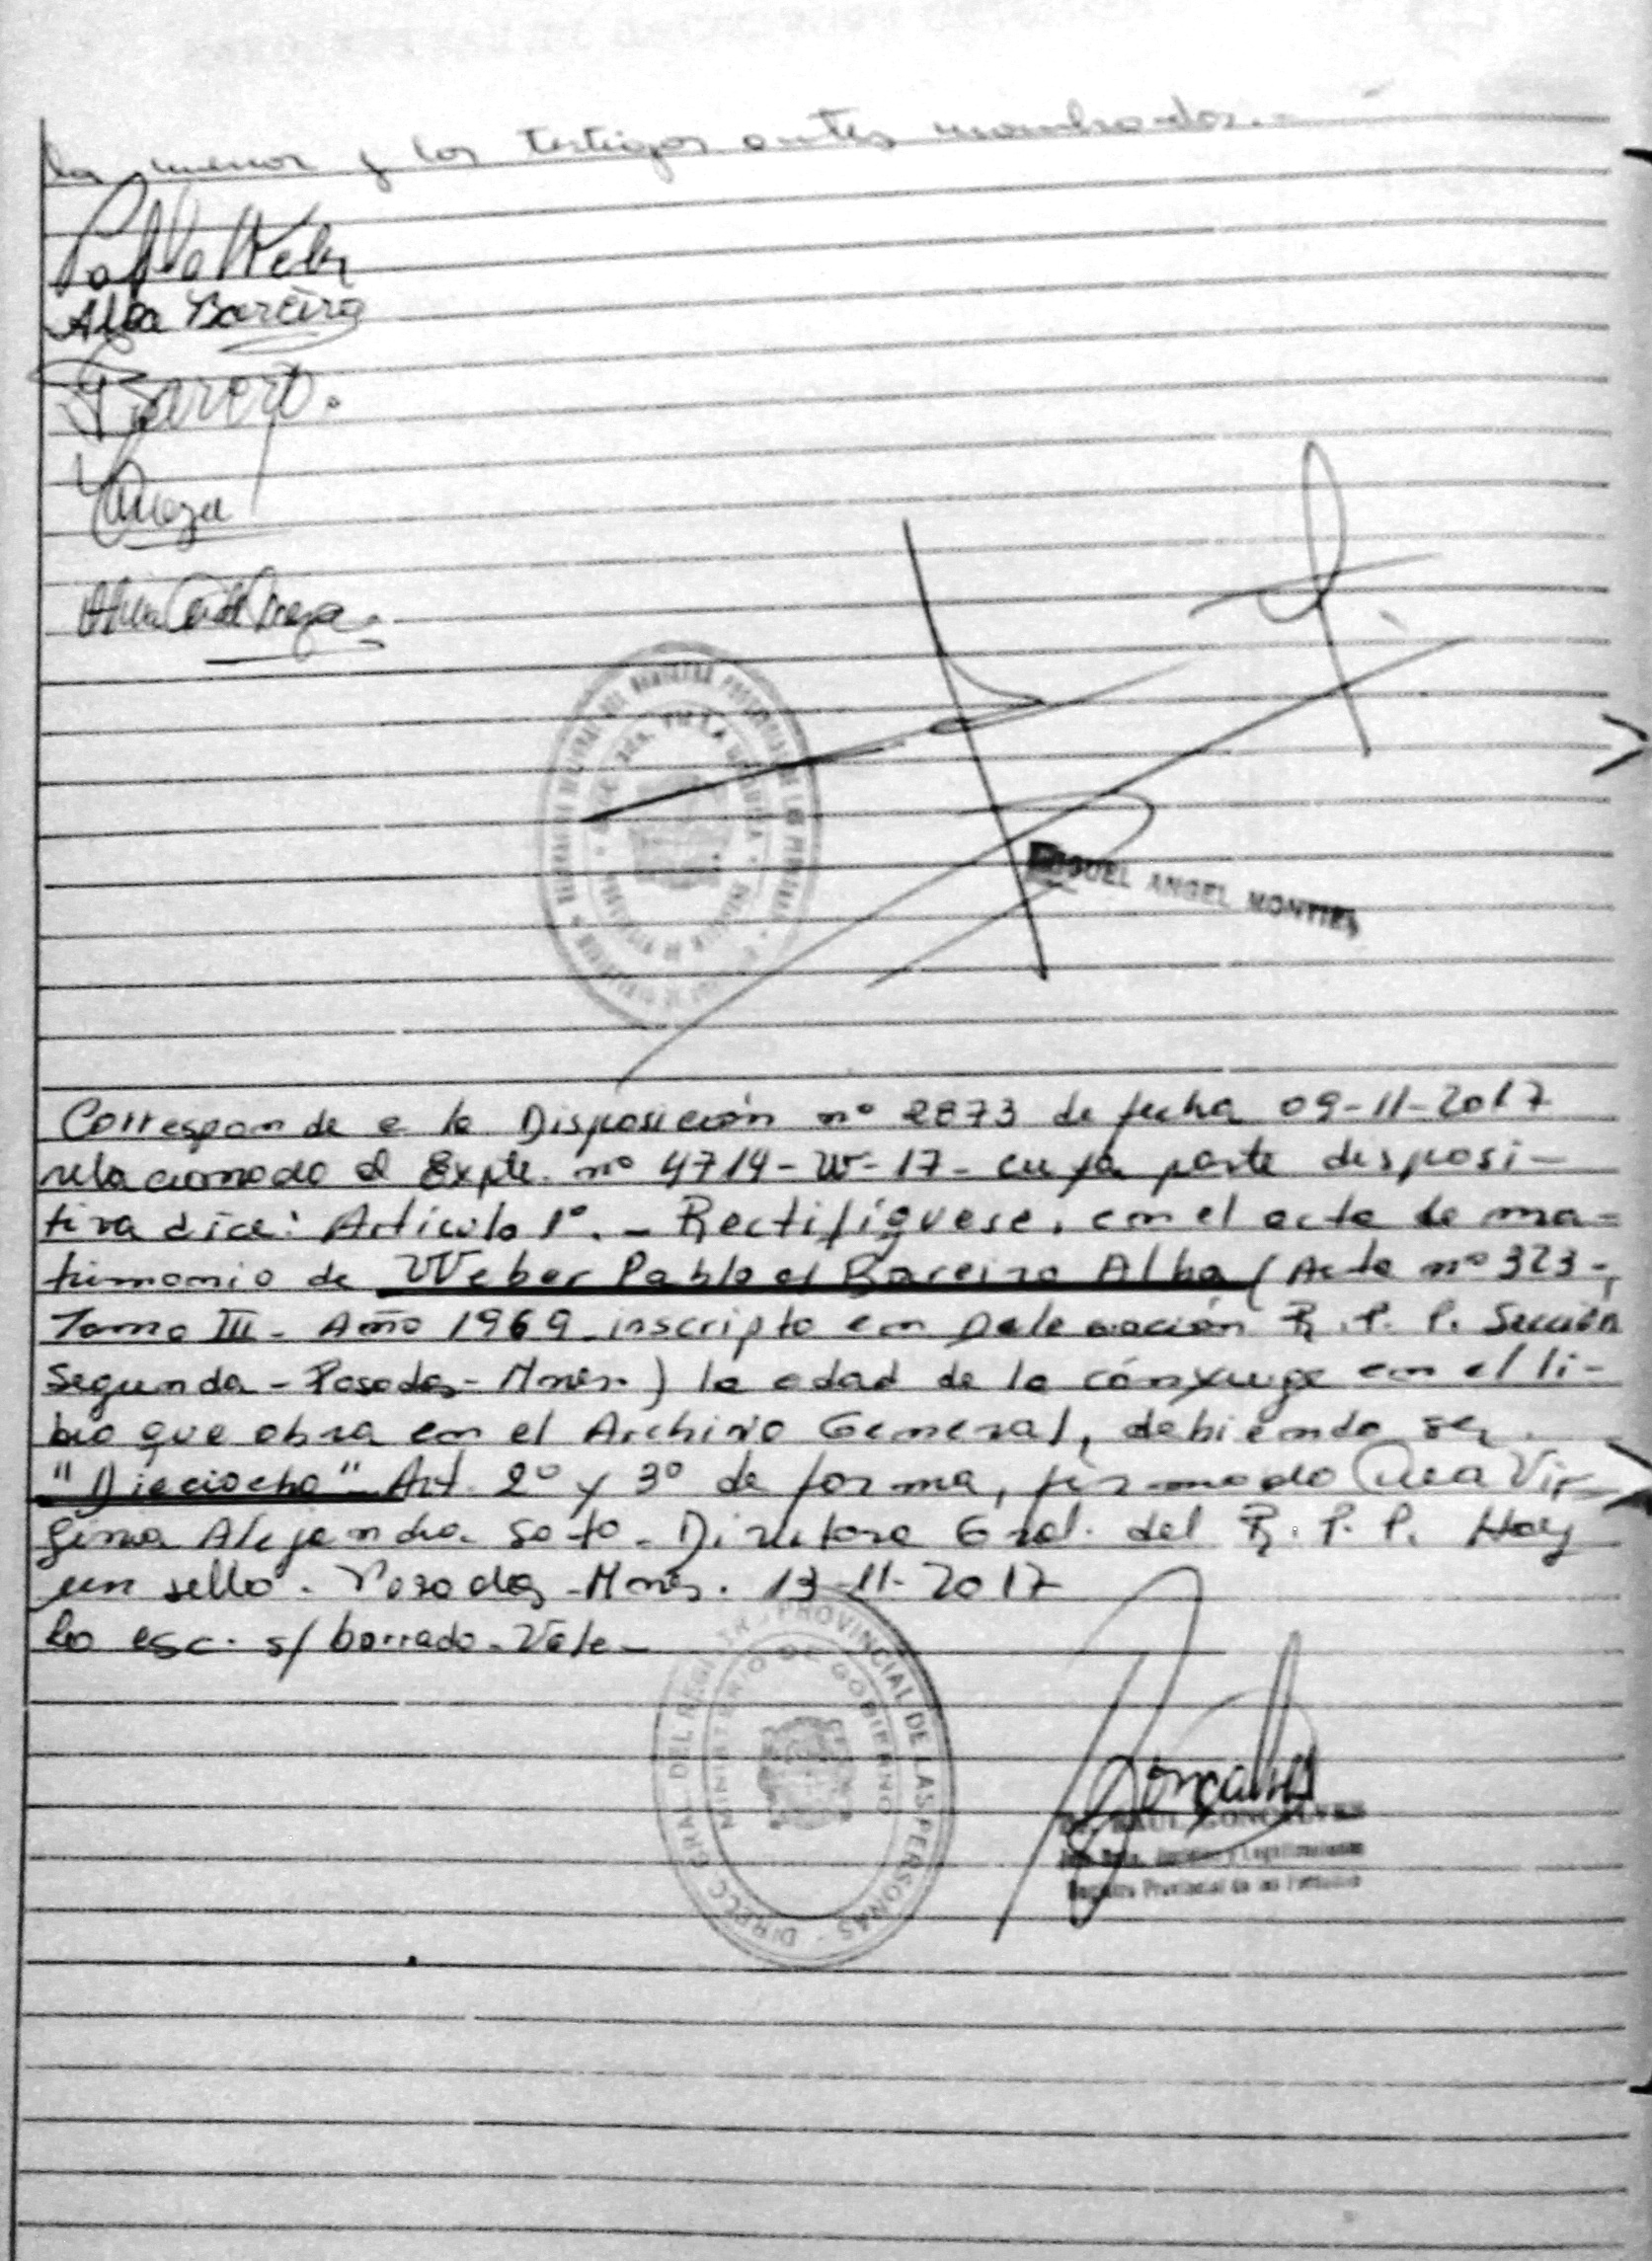 la menor y los testigos antes nombrados.-
Pablo Weber
Alba Bareiro
MIGUEL ANGEL MONTIEL
Corresponde a la Disposición nº 2873 de fecha 09-11-2017
relacionado al Expte. nº 4714-W-17- cuya parte disposi-
tiva dice: Artículo 1º.- Rectifíquese, en el acta de ma-
trimonio de Weber Pablo y Bareiro Alba (Acta nº 323-,
Tomo III- Año 1969 inscripto en Delegación R.P.P. Sección
Segunda-Posadas-Mnes.) la edad de la cónyuge en el li-
bro que obra en el Archivo General, debiendo ser
"Dieciocho" Art. 2º y 3º de forma, firmado Vir-
ginia Alejandra Soto- Directora Gral. del R.P.P. Hay
un sello. Posadas-Mnes. 13-11-2017
Lo esc. s/ borrado-Vale-
DIRECC GRAL DEL REGISTR. PROVINCIAL DE LAS PERSONAS
MINISTERIO DE GOBIERNO
Goncalves
RAUL GONCALVES
Registro Provincial de las Personas